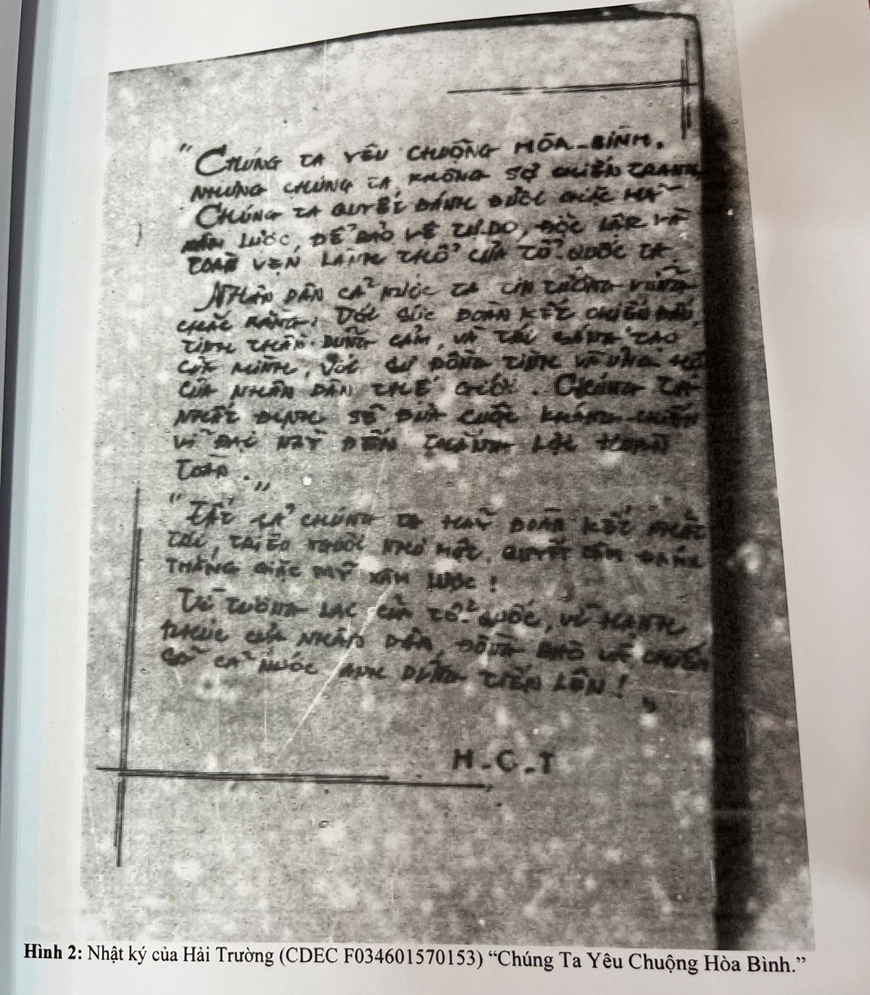 "CHÚNG TA YÊU CHUỘNG HÒA-BÌNH.
NHƯNG CHÚNG TA, KHÔNG SỢ CHIẾN TRANH
CHÚNG TA QUYẾT ĐÁNH ĐUỔI GIẶC MỸ
XÂM LƯỢC, ĐỂ BẢO VỆ TỰ DO, ĐỘC LẬP VÀ
TOÀN VẸN LÃNH THỔ CỦA TỔ QUỐC TA
NHÂN DÂN CẢ NƯỚC TA TIN TƯỞNG VỮNG
CHẮC RẰNG: VỚI SỨC ĐOÀN KẾT CHIẾN ĐẤU,
TINH THẦN DŨNG CẢM, VÀ TÀI SÁNG TẠO
CỦA MÌNH, VỚI SỰ ĐỒNG TÌNH VÀ ỦNG HỘ
CỦA NHÂN DÂN THẾ GIỚI. CHÚNG TA
NHẤT ĐỊNH SẼ ĐƯA CUỘC KHÁNG CHIẾN
VĨ ĐẠI NÀY ĐẾN THẮNG LỢI HOÀN
TOÀN."
"TẤT CẢ CHÚNG TA HÃY ĐOÀN KẾT NHẤT
TRÍ, NGƯỜI NHƯ MỘT. QUYẾT TÂM ĐÁNH
THẮNG GIẶC MỸ XÂM LƯỢC!
VÌ TƯƠNG LAI CỦA TỔ QUỐC, VÌ HẠNH
PHÚC CỦA NHÂN DÂN, ĐỒNG BÀO VÀ CHIẾN
SĨ CẢ NƯỚC ANH DŨNG TIẾN LÊN!"
H-C-T
Hình 2: Nhật ký của Hải Trường (CDEC F034601570153) "Chúng Ta Yêu Chuộng Hòa Bình."